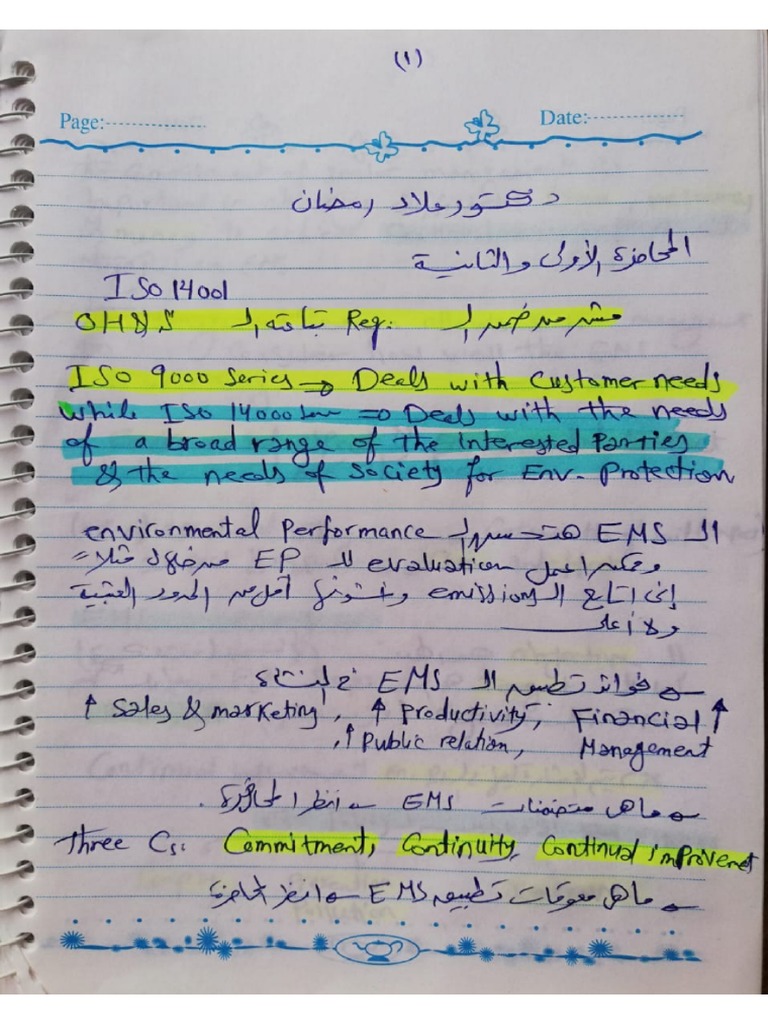 (١)
Page:
Date:
دكتور علاء رمضان
المحاضرة الأولى والثانية
ISO 14001
مش من ضمن الـ Req. بتاعته الـ OH&S
ISO 9000 Series → Deals with Customer needs
while ISO 14000 → Deals with the needs
of a broad range of the interested Parties
& the needs of Society for Env. Protection
الـ EMS هتحسن الـ environmental Performance
وممكن اعمل evaluation للـ EP من خلال مثلاً
إنى اتابع الـ emissions وأشوفها أقل من الحدود العتبية
ولا أعلى
فوائد تطبيق الـ EMS في المنشأة
↑ Sales & marketing, ↑ Productivity, Financial ↑
, ↑ Public relation, Management
ما هي متضمنات EMS ← انظر المحاضرة.
Three Cs: Commitment, Continuity, Continual improvemet
ما هي معوقات تطبيق EMS ← انظر المحاضرة